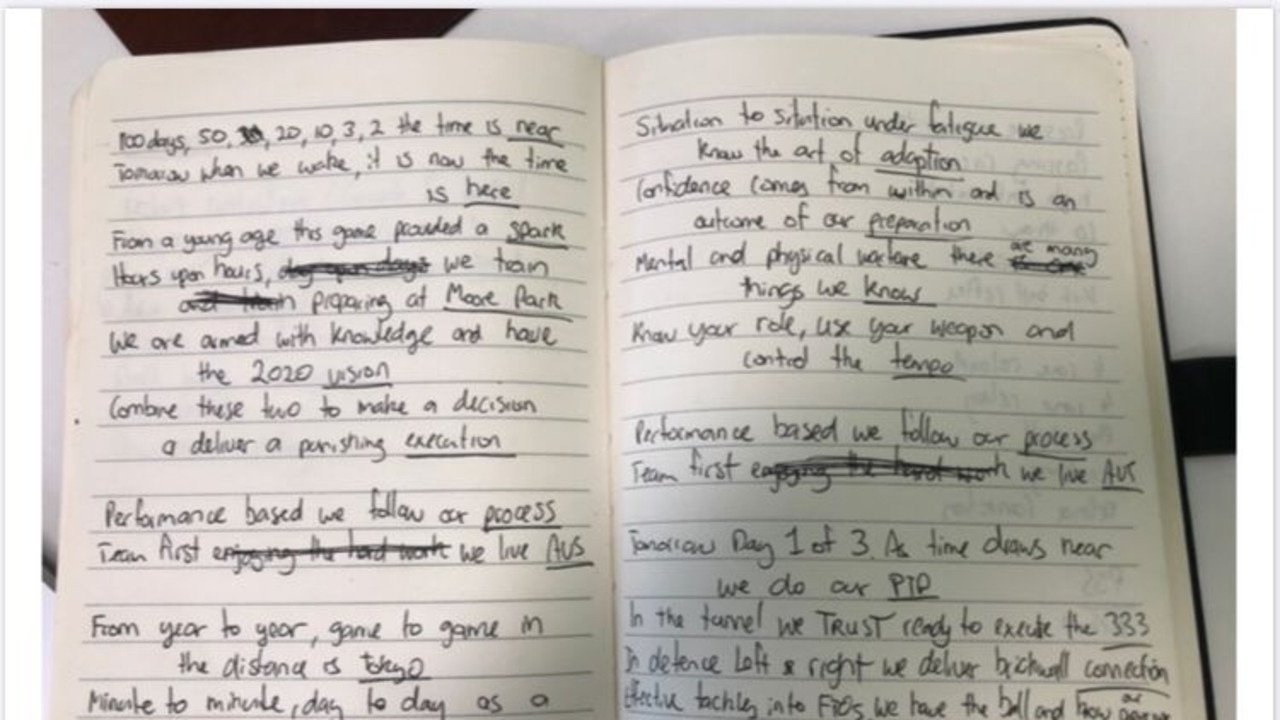 100 days, 50, 20, 10, 3, 2 the time is near
Tomorrow when we wake, it is now the time
is here
From a young age this game provided a spark
Hours upon hours, day upon days we train
and train preparing at Moore Park
We are armed with knowledge and have
the 2020 vision
Combine these two to make a decision
a deliver a punishing execution
Performance based we follow our process
Team first enjoying the hard work we live AUS
From year to year, game to game in
the distance is Tokyo
Minute to minute, day to day as a
Situation to sitution under fatigue we
know the art of adaption
Confidence comes from within and is an
outcome of our preparation
are many
Mental and physical warfare there
things we know
Know your role, use your weapon and
control the tempo
Performance based we follow our process
Team first enjoying the hard work we live AUS
Tomorrow Day 1 of 3. As time draws near
we do our PTP
In the tunnel we TRUST ready to execute the 333
In defence Left & right we deliver brickwall connection
Effective tackles into we have the ball and